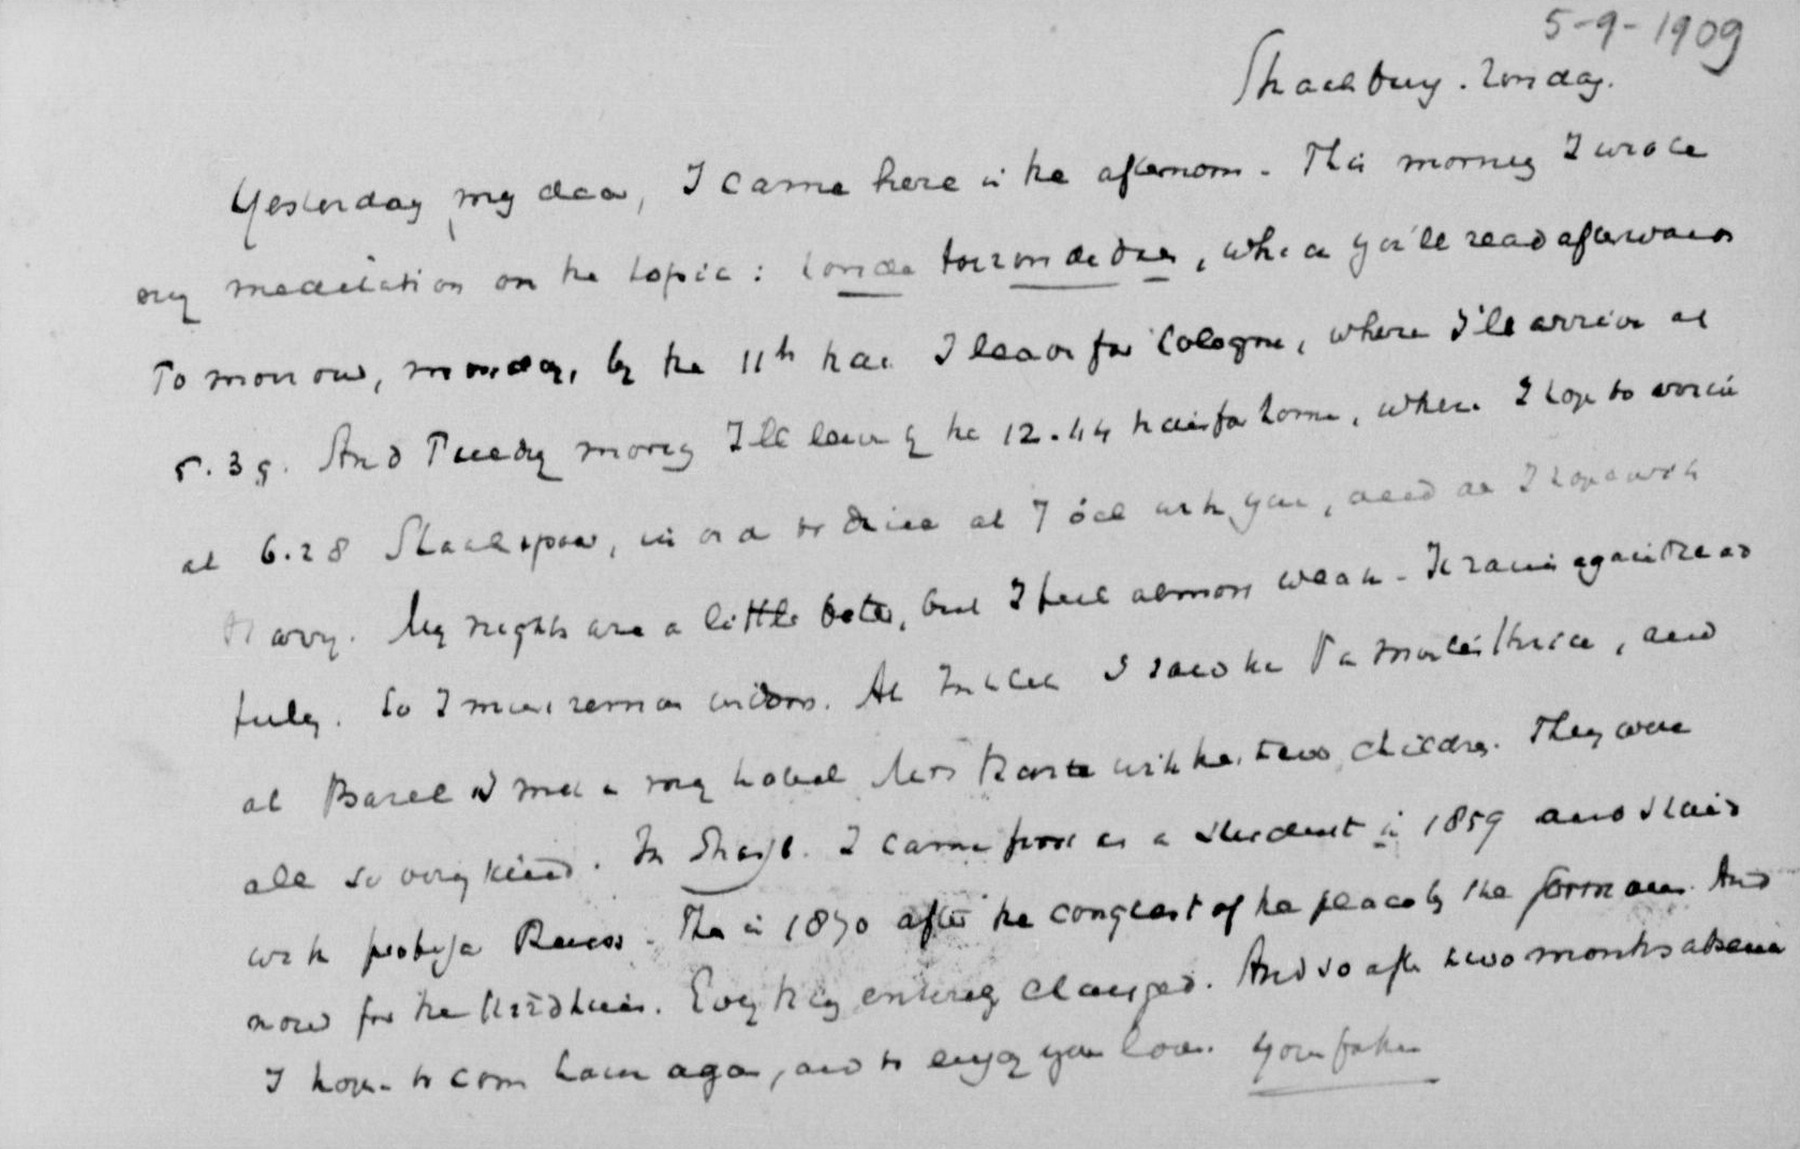 5-9-1909
Sunday.
Yesterday my dear, I came here in the afternoon. This morning I wrote
my meditation on the topic: , which you'll read afterwards
Tomorrow, monday, by the 11th I leave for Cologne, where I'll arrive at
5.39. And Tuesday morning I'll leave by the 12.44 train for home, where I hope to arrive
at 6.28 , in order to dine at 7 o'cl with you, and as I hope with
Harry. My nights are a little better, but I feel almost weak. It rains again dread
fully. So I must remain indoors. At I saw the thrice, and
at Basel I met in my hotel Mrs with her two children. They were
all so very kind. In I came first as a student in 1859 and staid
with professor Reuss. Then in 1870 after the conquest of the place by the Germans. And
now for the third time. Every thing entirely changed. And so after two months absence
I hope to come home again, and to enjoy your love. Your father